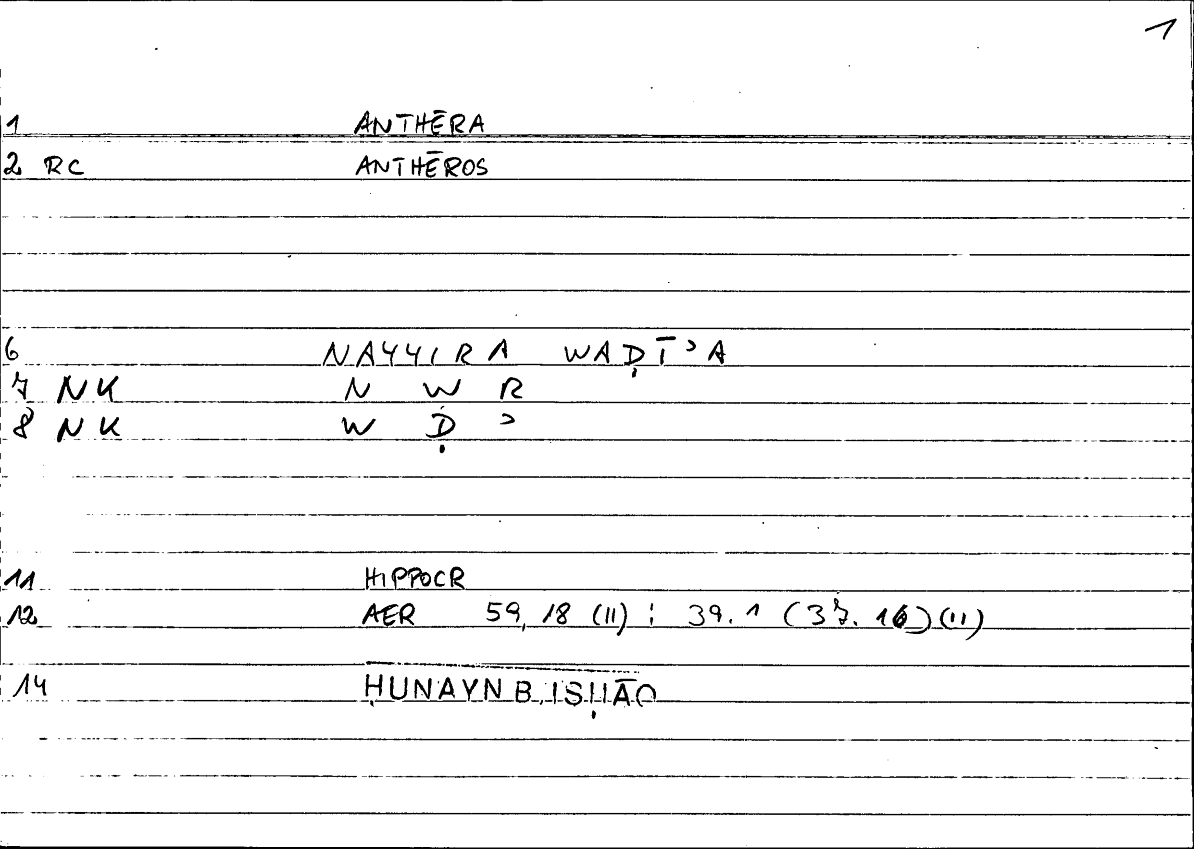 1
1 ANTHĒRA
2 RC ANTHĒROS
6 NAYYIRA WAḌĪʾA
7 NK N W R
8 NK W Ḍ ʾ
11 HIPPOCR
12 AER 59, 18 (11) : 39. 1 (37. 16) (11)
14 ḤUNAYN B. ISḤĀQ